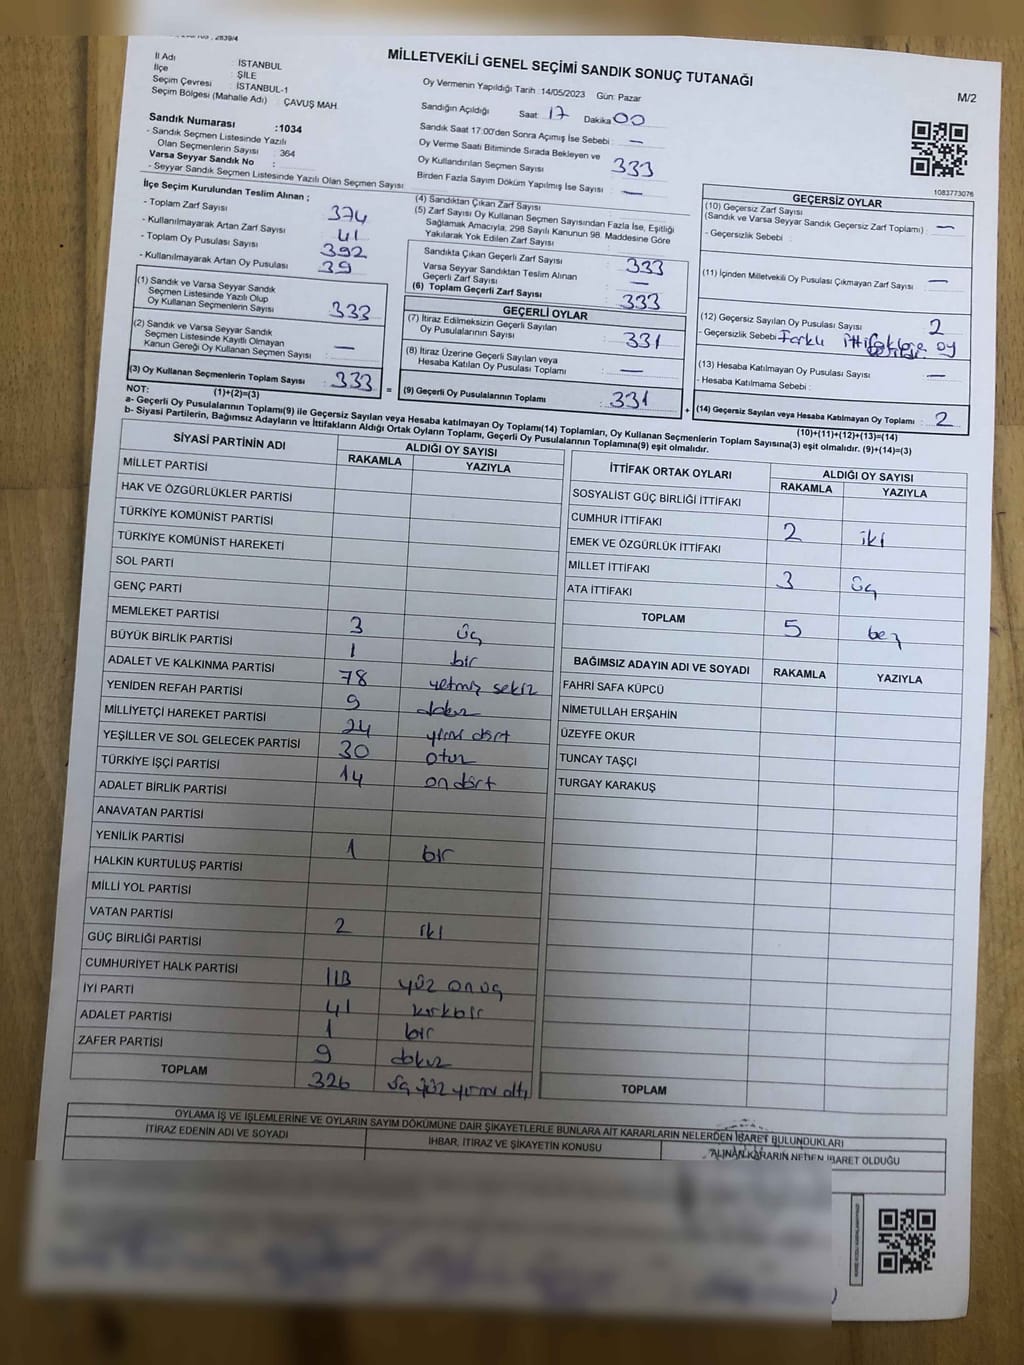 2839/4
MİLLETVEKİLİ GENEL SEÇİMİ SANDIK SONUÇ TUTANAĞI
M/2
İl Adı : İSTANBUL
İlçe : ŞİLE
Seçim Çevresi : İSTANBUL-1
Seçim Bölgesi (Mahalle Adı) : ÇAVUŞ MAH
Oy Vermenin Yapıldığı Tarih :14/05/2023 Gün: Pazar
Sandığın Açıldığı Saat : 17 Dakika 00
Sandık Saat 17:00'den Sonra Açımış İse Sebebi : —
Oy Verme Saati Bitiminde Sırada Bekleyen ve
Oy Kullandırılan Seçmen Sayısı : 333
Birden Fazla Sayım Döküm Yapılmış İse Sayısı : —
Sandık Numarası :1034
- Sandık Seçmen Listesinde Yazılı
Olan Seçmenlerin Sayısı : 364
Varsa Seyyar Sandık No :
- Seyyar Sandık Seçmen Listesinde Yazılı Olan Seçmen Sayısı
1083773076
İlçe Seçim Kurulundan Teslim Alınan ;
- Toplam Zarf Sayısı : 374
- Kullanılmayarak Artan Zarf Sayısı : 41
- Toplam Oy Pusulası Sayısı : 392
- Kullanılmayarak Artan Oy Pusulası : 39
(1) Sandık ve Varsa Seyyar Sandık
Seçmen Listesinde Yazılı Olup
Oy Kullanan Seçmenlerin Sayısı : 333
(2) Sandık ve Varsa Seyyar Sandık
Seçmen Listesinde Kayıtlı Olmayan
Kanun Gereği Oy Kullanan Seçmen Sayısı : —
(3) Oy Kullanan Seçmenlerin Toplam Sayısı : 333
(1)+(2)=(3)
(4) Sandıktan Çıkan Zarf Sayısı
(5) Zarf Sayısı Oy Kullanan Seçmen Sayısından Fazla İse, Eşitliği
Sağlamak Amacıyla, 298 Sayılı Kanunun 98. Maddesine Göre
Yakılarak Yok Edilen Zarf Sayısı
Sandıkta Çıkan Geçerli Zarf Sayısı : 333
Varsa Seyyar Sandıktan Teslim Alınan
Geçerli Zarf Sayısı : —
(6) Toplam Geçerli Zarf Sayısı : 333
GEÇERLİ OYLAR
(7) İtiraz Edilmeksizin Geçerli Sayılan
Oy Pusulalarının Sayısı : 331
(8) İtiraz Üzerine Geçerli Sayılan veya
Hesaba Katılan Oy Pusulası Toplamı : —
= (9) Geçerli Oy Pusulalarının Toplamı : 331
GEÇERSİZ OYLAR
(10) Geçersiz Zarf Sayısı
(Sandık ve Varsa Seyyar Sandık Geçersiz Zarf Toplamı) : —
- Geçersizlik Sebebi :
(11) İçinden Milletvekili Oy Pusulası Çıkmayan Zarf Sayısı : —
(12) Geçersiz Sayılan Oy Pusulası Sayısı : 2
- Geçersizlik Sebebi : Farklı ittifaklara oy
(13) Hesaba Katılmayan Oy Pusulası Sayısı : —
- Hesaba Katılmama Sebebi :
+ (14) Geçersiz Sayılan veya Hesaba Katılmayan Oy Toplamı : 2
(10)+(11)+(12)+(13)=(14)
NOT:
a- Geçerli Oy Pusulalarının Toplamı(9) ile Geçersiz Sayılan veya Hesaba katılmayan Oy Toplamı(14) Toplamları, Oy Kullanan Seçmenlerin Toplam Sayısına(3) eşit olmalıdır. (9)+(14)=(3)
b- Siyasi Partilerin, Bağımsız Adayların ve İttifakların Aldığı Ortak Oyların Toplamı, Geçerli Oy Pusulalarının Toplamına(9) eşit olmalıdır.
SİYASİ PARTİNİN ADI ALDIĞI OY SAYISI
RAKAMLA YAZIYLA
MİLLET PARTİSİ
HAK VE ÖZGÜRLÜKLER PARTİSİ
TÜRKİYE KOMÜNİST PARTİSİ
TÜRKİYE KOMÜNİST HAREKETİ
SOL PARTİ
GENÇ PARTİ
MEMLEKET PARTİSİ 3 üç
BÜYÜK BİRLİK PARTİSİ 1 bir
ADALET VE KALKINMA PARTİSİ 78 yetmiş sekiz
YENİDEN REFAH PARTİSİ 9 dokuz
MİLLİYETÇİ HAREKET PARTİSİ 24 yirmi dört
YEŞİLLER VE SOL GELECEK PARTİSİ 30 otuz
TÜRKİYE İŞÇİ PARTİSİ 14 on dört
ADALET BİRLİK PARTİSİ
ANAVATAN PARTİSİ
YENİLİK PARTİSİ 1 bir
HALKIN KURTULUŞ PARTİSİ
MİLLİ YOL PARTİSİ
VATAN PARTİSİ 2 iki
GÜÇ BİRLİĞİ PARTİSİ
CUMHURİYET HALK PARTİSİ 113 yüz on üç
İYİ PARTİ 41 kırkbir
ADALET PARTİSİ 1 bir
ZAFER PARTİSİ 9 dokuz
TOPLAM 326 üç yüz yirmi altı
İTTİFAK ORTAK OYLARI ALDIĞI OY SAYISI
RAKAMLA YAZIYLA
SOSYALİST GÜÇ BİRLİĞİ İTTİFAKI
CUMHUR İTTİFAKI 2 iki
EMEK VE ÖZGÜRLÜK İTTİFAKI
MİLLET İTTİFAKI 3 üç
ATA İTTİFAKI
TOPLAM 5 beş
BAĞIMSIZ ADAYIN ADI VE SOYADI RAKAMLA YAZIYLA
FAHRİ SAFA KÜPCÜ
NİMETULLAH ERŞAHİN
ÜZEYFE OKUR
TUNCAY TAŞÇI
TURGAY KARAKUŞ
TOPLAM
OYLAMA İŞ VE İŞLEMLERİNE VE OYLARIN SAYIM DÖKÜMÜNE DAİR ŞİKAYETLERLE BUNLARA AİT KARARLARIN NELERDEN İBARET BULUNDUKLARI
İTİRAZ EDENİN ADI VE SOYADI İHBAR, İTİRAZ VE ŞİKAYETİN KONUSU ALINAN KARARIN NEDEN İBARET OLDUĞU